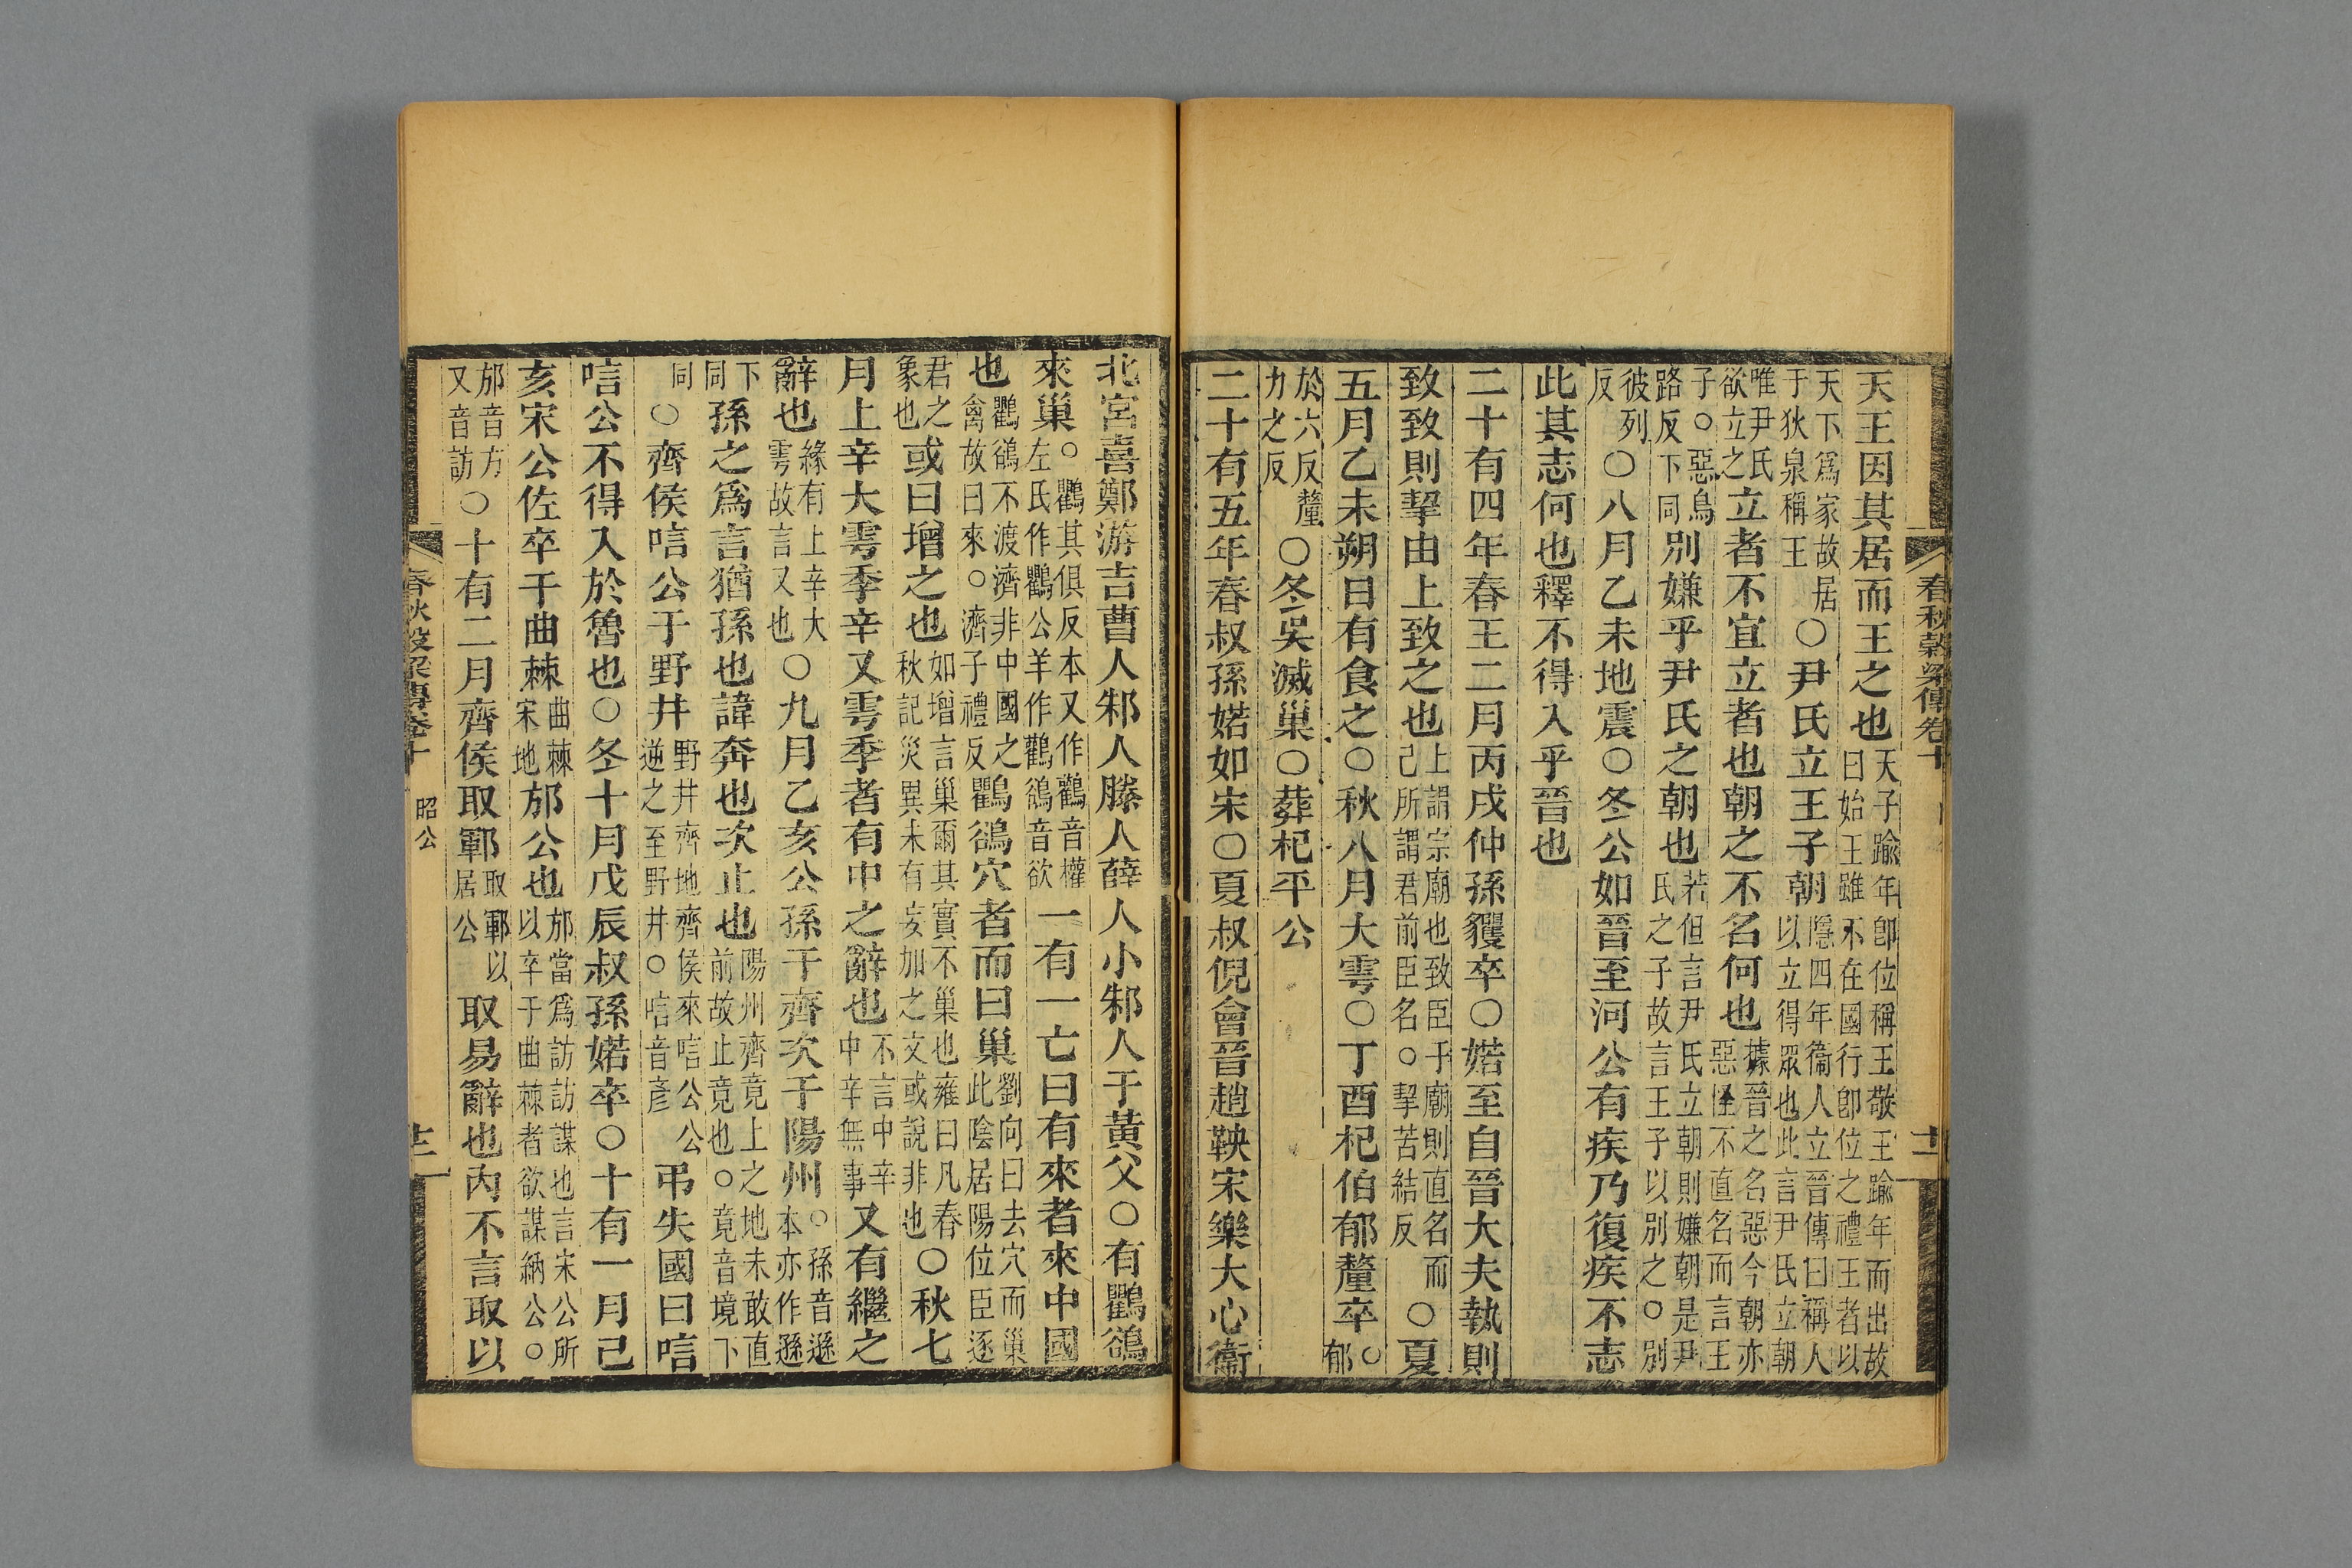 春秋穀梁傳卷十
天王因其居而王之也天子踰年卽位稱王敬王踰年而出故曰始王雖不在國行卽位之禮王者以
天下爲家故居于狄泉稱王○尹氏立王子朝隱四年衞人立晉傳曰稱人以立得眾也此言尹氏立朝
唯尹氏欲立之立者不宜立者也朝之不名何也據晉之名惡今朝亦惡怪不直名而言王
子○惡烏路反下同別嫌乎尹氏之朝也若但言尹氏立朝則嫌朝是尹氏之子故言王子以別之○別
彼列反○八月乙未地震○冬公如晉至河公有疾乃復疾不志
此其志何也釋不得入乎晉也
二十有四年春王二月丙戌仲孫貜卒○婼至自晉大夫執則
致致則挈由上致之也上謂宗廟也致臣于廟則直名而己所謂君前臣名○挈苦結反○夏
五月乙未朔日有食之○秋八月大雩○丁酉杞伯郁釐卒○郁
於六反釐力之反○冬吳滅巢○葬杞平公
二十有五年春叔孫婼如宋○夏叔倪會晉趙鞅宋樂大心衞
北宮喜鄭游吉曹人邾人滕人薛人小邾人于黃父○有鸜鵒
來巢○鸜其俱反本又作鸛音權左氏作鸜公羊作鸛鵒音欲一有一亡曰有來者來中國
也鸜鵒不渡濟非中國之禽故曰來○濟子禮反鸜鵒穴者而曰巢劉向曰去穴而巢此陰居陽位臣逐
君之象也或曰增之也如增言巢爾其實不巢也雍曰凡春秋記災異未有妄加之文或說非也○秋七
月上辛大雩季辛又雩季者有中之辭也不言中辛中辛無事又有繼之
辭也緣有上辛大雩故言又也○九月乙亥公孫于齊次于陽州○孫音遜本亦作遜
下同孫之爲言猶孫也諱奔也次止也陽州齊竟上之地未敢直前故止竟也○竟音境下
同○齊侯唁公于野井野井齊地齊侯來唁公公逆之至野井○唁音彥弔失國曰唁
唁公不得入於魯也○冬十月戊辰叔孫婼卒○十有一月己
亥宋公佐卒于曲棘曲棘宋地邡公也邡當爲訪訪謀也言宋公所以卒于曲棘者欲謀納公○
邡音方又音訪○十有二月齊侯取鄆取鄆以居公取易辭也內不言取以
春秋穀梁傳卷十 昭公 十二